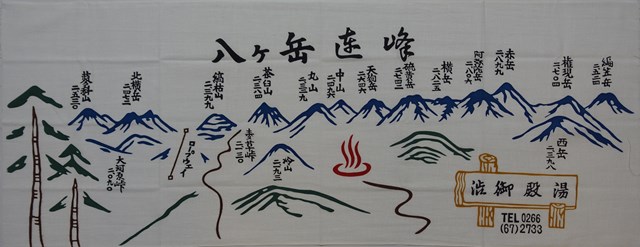 八ヶ岳連峰
蓼科山
二五三〇
北横岳
大河原峠
二〇九〇
ロープウェイ
縞枯山
麦草峠
二一二〇
茶臼山
二三八四
冷山
二一九三
丸山
二三二九
中山
二四九六
天狗岳
二六四六
硫黄岳
横岳
二八二五
阿弥陀岳
二八〇六
赤岳
二八九九
権現岳
二七〇四
西岳
二三九八
渋御殿湯
TEL 0266
(67) 2733